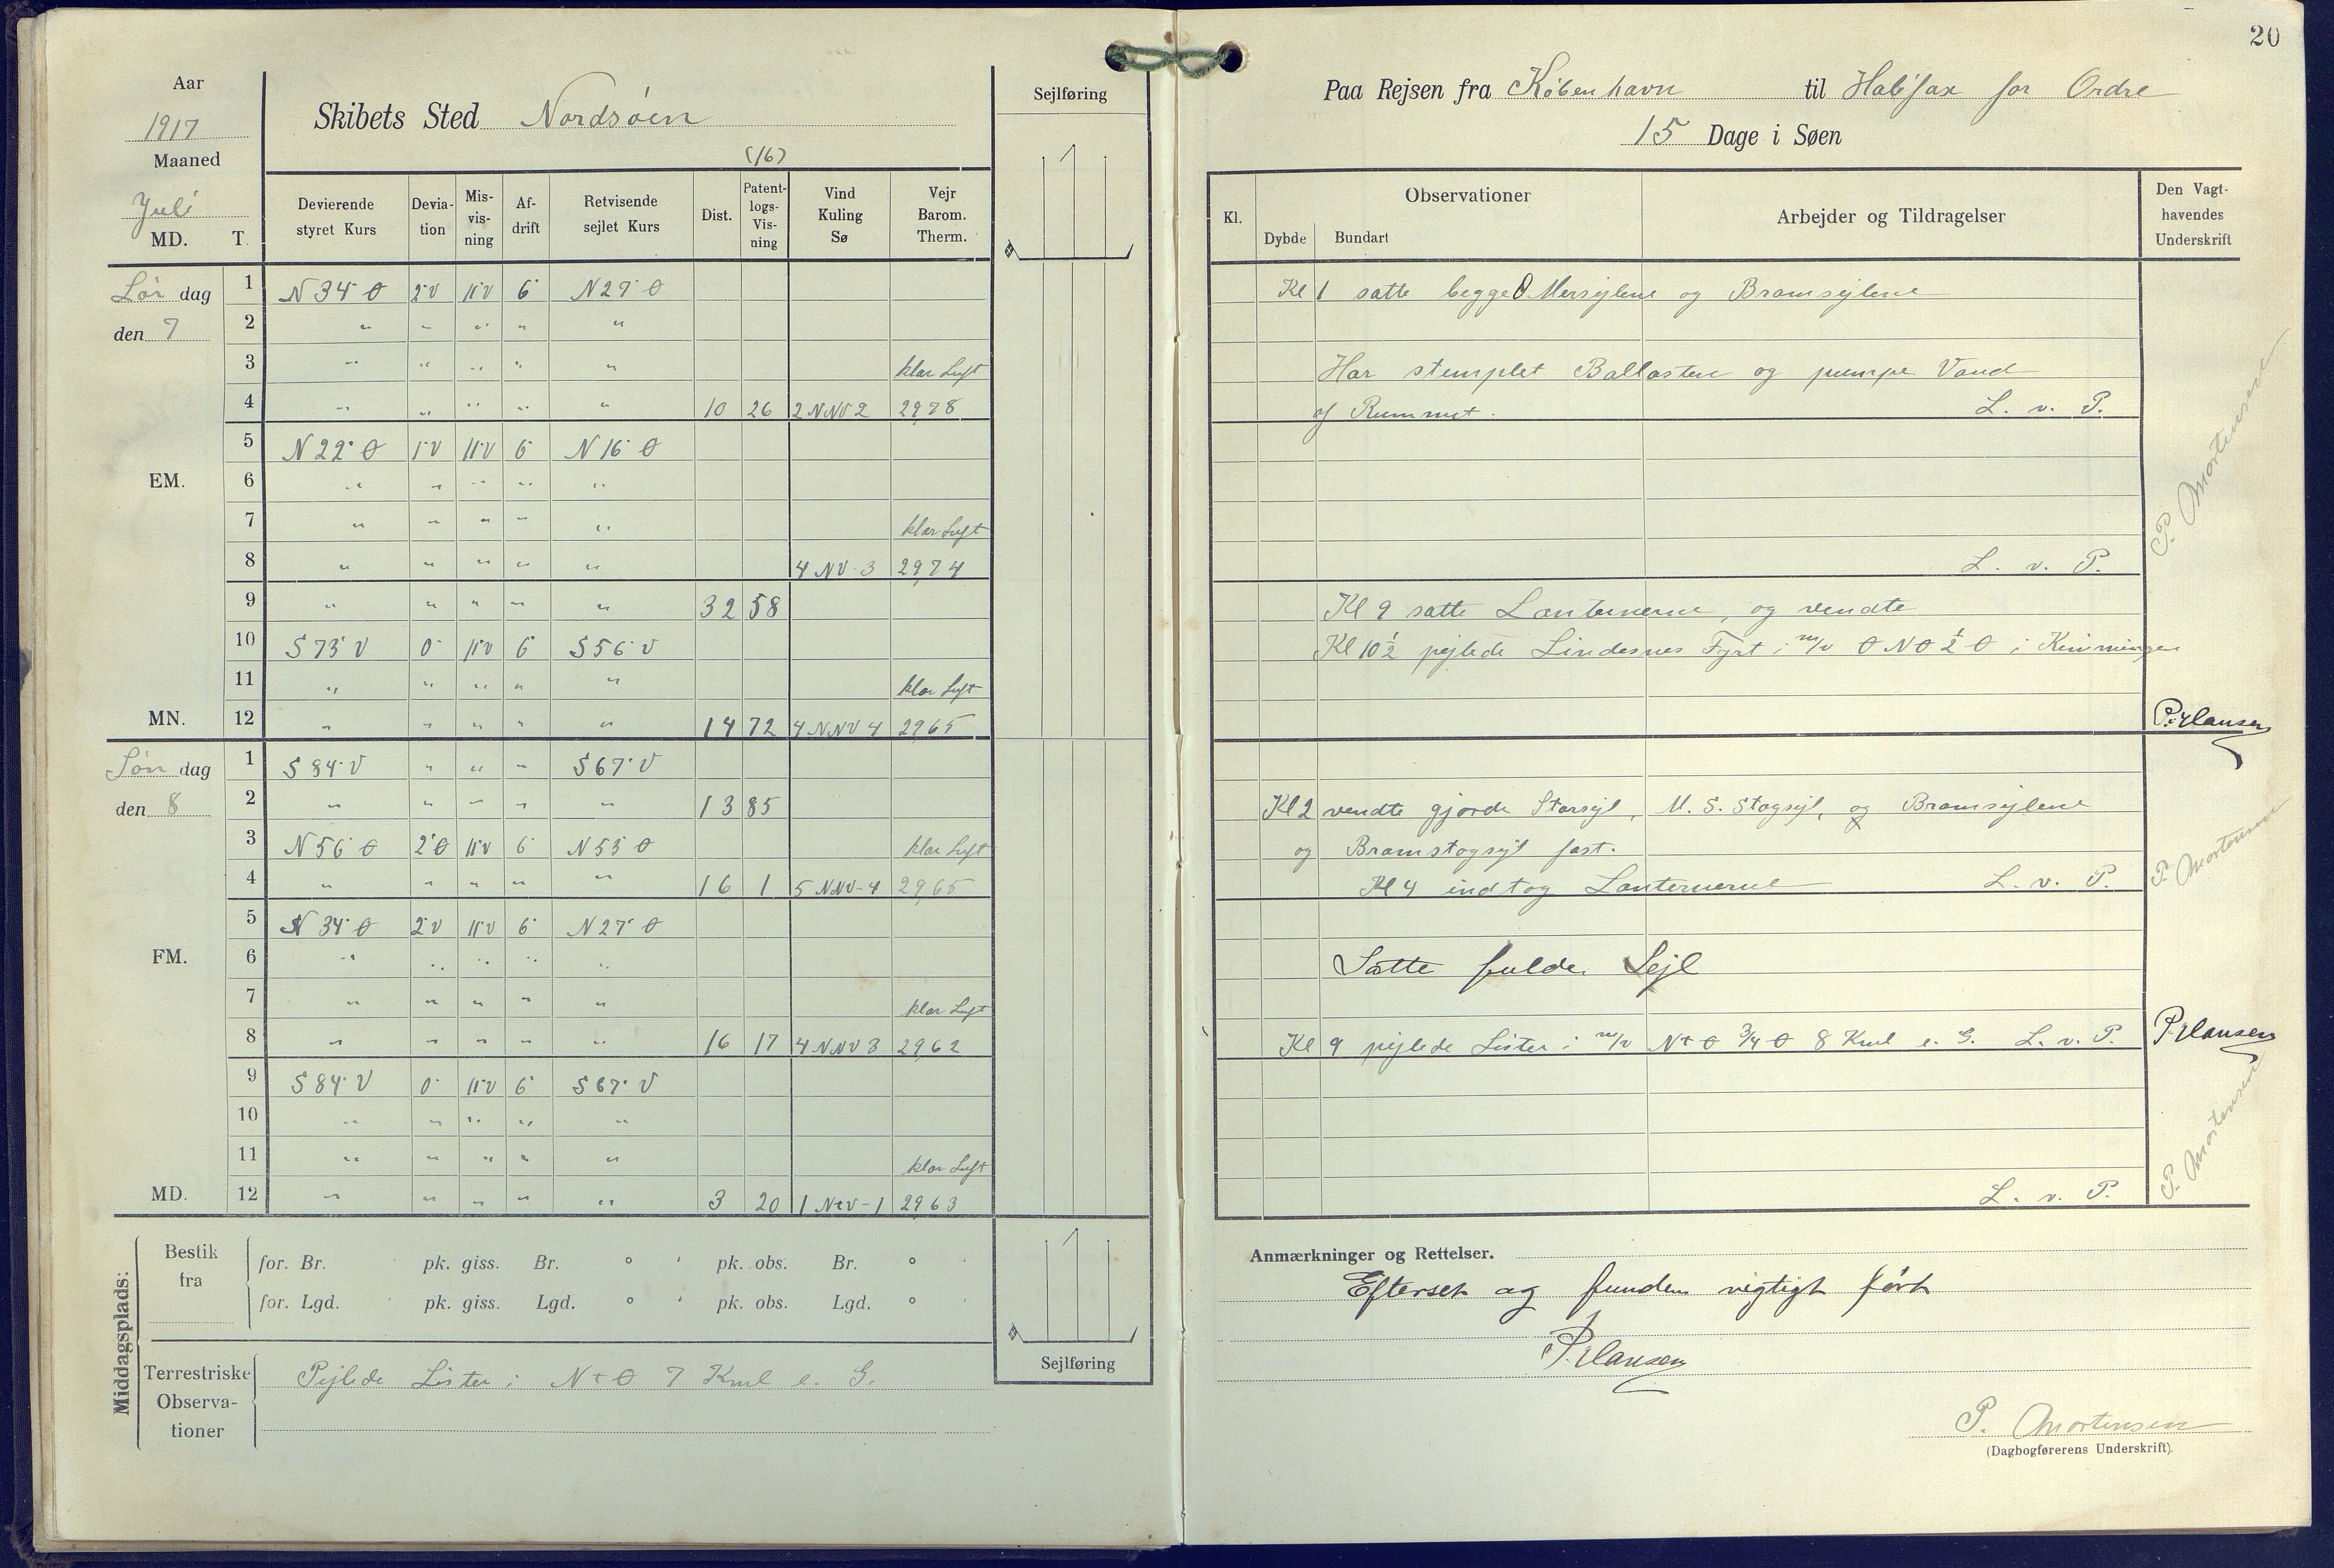 Aar
1917
Maaned
Juli
MD. T.
Skibets Sted Nordsöen
(16)
Devierende styret Kurs | Deviation | Misvisning | Afdrift | Retvisende sejlet Kurs | Dist. | Patentlogs-Visning | Vind Kuling Sø | Vejr Barom. Therm.
Sejlføring
Lör dag 1 N 34° Ø 2°V 11°V 6° N 27° Ø
den 7 2 " " " " "
3 " " " " " klar Luft
4 " " " " " 10 26 2 NNV 2 2978
5 N 22° Ø 1°V 11°V 6° N 16° Ø
EM. 6 " " " " "
7 " " " " " klar Luft
8 " " " " " 4 NV-3 2974
9 " " " " " 32 58
10 S 73° V 0° 11°V 6° S 56° V
11 " " " " " klar Luft
MN. 12 " " " " " 14 72 4 NNV 4 2965
Søn dag 1 S 84° V " " " S 67° V
den 8 2 " " " " " 13 85
3 N 56° Ø 2°Ø 11°V 6° N 53° Ø klar Luft
4 " " " " " 16 1 5 NNV-4 2965
5 N 34° Ø 2°V 11°V 6° N 27° Ø
FM. 6 " " " " "
7 " " " " " klar Luft
8 " " " " " 16 17 4 NNV 3 2962
9 S 84° V 0° 11°V 6° S 67° V
10 " " " " "
11 " " " " " klar Luft
MD. 12 " " " " " 3 20 1 NtV-1 2963
Middagsplads:
Bestik fra
for. Br. pk. giss. Br. ° ' pk. obs. Br. ° '
for. Lgd. pk. giss. Lgd. ° ' pk. obs. Lgd. ° '
Sejlføring
Terrestriske Observationer
Pejlede Lister i NtØ 7 Kml e. G.
20
Paa Rejsen fra København til Halifax for Ordre
15 Dage i Søen
Kl. | Observationer | Dybde | Bundart | Arbejder og Tildragelser | Den Vagthavendes Underskrift
Kl 1 satte begge Mersejlene og Bramsejlene
Har stemplet Ballasten og pumpe Vand
af Rummet. L. v. P.
P. Mortensen
L. v. P.
Kl 9 satte Lanternerne, og vendte
Kl 10 1/2 pejlede Lindesnes Fyrt i m/v Ø N Ø 1/2 Ø i Kimmingen
P. Hansen
Kl 2 vendte gjorde Storsejl, M. S. Stagsejl, og Bramsejlene
og Bramstagsejl fast.
Kl 4 indtog Lanternerne L. v. P.
P. Mortensen
Satte fulde Sejl
Kl 9 pejlede Lister i m/v NtØ 3/4 Ø 8 Kml e. G. L. v. P.
P. Hansen
L. v. P.
P. Mortensen
Anmærkninger og Rettelser.
Efterset og funden rigtigt ført
P. Hansen
P. Mortensen
(Dagbogførerens Underskrift).